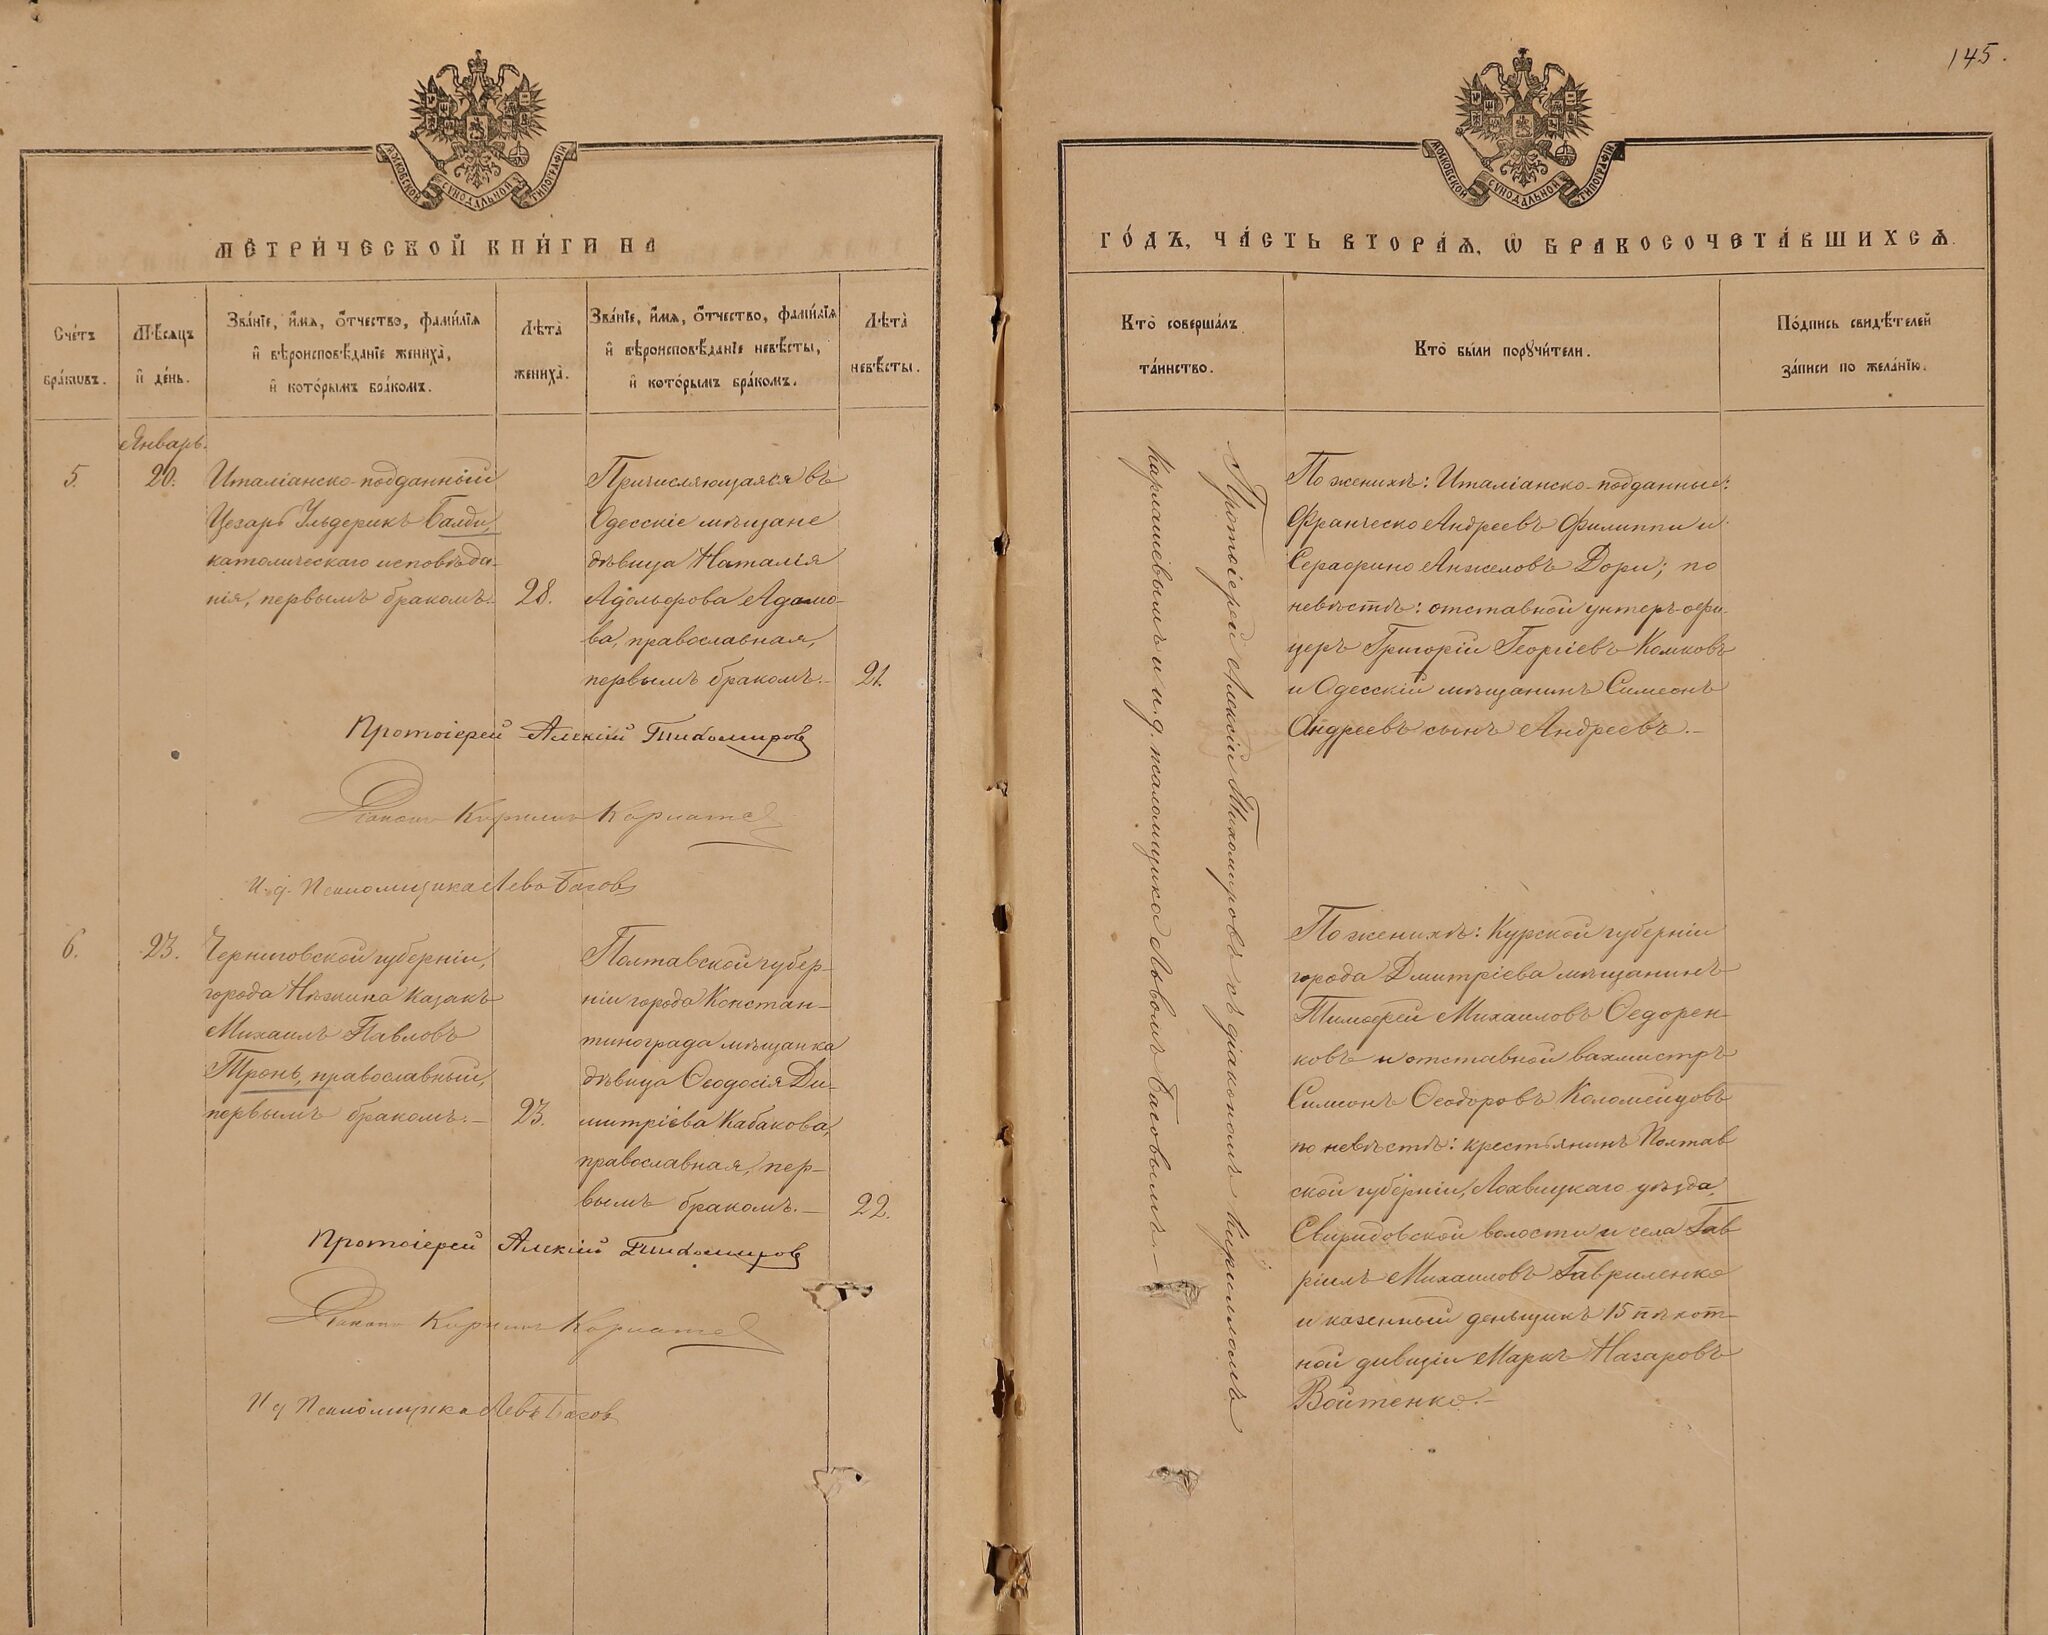 145.
МОСКОВСКОЙ СѴНОДАЛЬНОЙ ТИПОГРАФІИ
МЕТРИ́ЧЕСКОЙ КНИ́ГИ НА
Сче́тъ бра́кѡвъ.
Мѣ́сѧцъ и҆ де́нь.
Зва́нїе, и҆́мѧ, ѻ҆́тчество, фами́лїѧ
и҆ вѣроисповѣ́данїе жениха̀,
и҆ кото́рымъ бра́комъ.
Лѣта̀ жениха̀.
Зва́нїе, и҆́мѧ, ѻ҆́тчество, фами́лїѧ
и҆ вѣроисповѣ́данїе невѣ́сты,
и҆ кото́рымъ бра́комъ.
Лѣта̀ невѣ́сты.
Январь.
5.
20.
Италіанско-подданный
Цезарь Ульдерикъ Балди,
католическаго исповѣда-
нія, первымъ бракомъ.-
28.
Причисляющаяся въ
Одесскіе мѣщане
дѣвица Наталія
Адольфова Адамо-
ва, православная,
первымъ бракомъ.-
21.
Протоіерей Алексій Тихомировъ
Діаконъ Кириллъ
И. д. Псаломщика Левъ Басовъ
6.
23.
Черниговской губерніи,
города Нѣжина казакъ
Михаилъ Павловъ
Тронь, православный,
первымъ бракомъ.-
23.
Полтавской губер-
ніи города Констан-
тинограда мѣщанка
дѣвица Ѳеодосія Ди-
митріева Кабакова,
православная, пер-
вымъ бракомъ.-
22.
Протоіерей Алексій Тихомировъ
Діаконъ Кириллъ
И д Псаломщика Левъ Басовъ
МОСКОВСКОЙ СѴНОДАЛЬНОЙ ТИПОГРАФІИ
ГО́ДЪ, ЧА́СТЬ ВТОРА́Ѧ, Ѡ҆ БРАКОСОЧЕТА́ВШИХСѦ.
Кто̀ соверша́лъ
та́инство.
Кто̀ бы́ли порꙋчи́тели.
По́дпись свидѣ́телей
за́писи по жела́нїю.
Протоіерей Алексій Тихомировъ съ діакономъ Кирилломъ
и и. д. псаломщика Львомъ Басовымъ.-
По женихѣ: Италіанско-подданные:
Франческо Андреевъ Филиппи и
Серафино Анжеловъ Дори; по
невѣстѣ: отставной унтеръ-офи-
церъ Григорій Георгіевъ Комковъ
и Одесскій мѣщанинъ Симеонъ
Андреевъ сынъ Андреевъ.-
По женихѣ: Курской губерніи
города Дмитріева мѣщанинъ
Тимофей Михаиловъ Ѳедорен-
ковъ и отставной вахмистръ
Симеонъ Ѳеодоровъ Коломейцовъ
по невѣстѣ: крестьянинъ Полтав
ской губерніи, Лохвицкаго уѣзда,
Свиридовской волости и села Гав
ріилъ Михаиловъ Гавриленко
и казенный деньщикъ 15 пѣхот-
ной дивизіи Маркъ Назаровъ
Войтенко.-